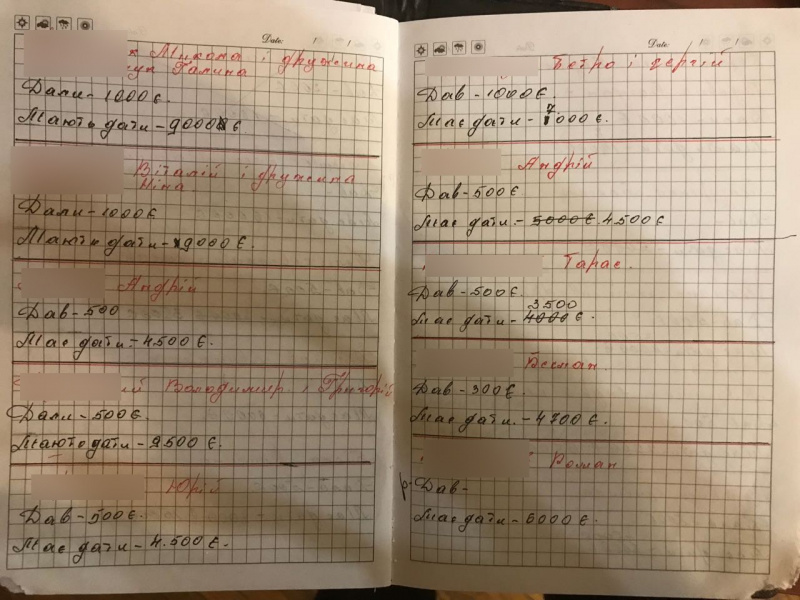 Date:
Микола і дружина
Галина
Дали - 1000 €.
Мають дати - 9000 €
Віталій і дружина
Ніна
Дали - 1000 €
Мають дати - 9000 €.
Андрій
Дав - 500
Має дати - 4500 €.
Володимир і Григорій
Дали - 500 €.
Мають дати - 9500 €.
Юрій
Дав - 500 €.
Має дати - 4.500 €.
Date:
Петро і Сергій
Дав - 1000 €.
7
Має дати - 000 €.
Андрій
Дав - 500 €
Має дати - 5000 €. 4500 €
Тарас.
Дав - 500 €.
3500
Має дати - 4000 €.
Роман
Дав - 300 €.
Має дати. - 4700 €.
Роман
Дав -
Має дати - 6000 €.